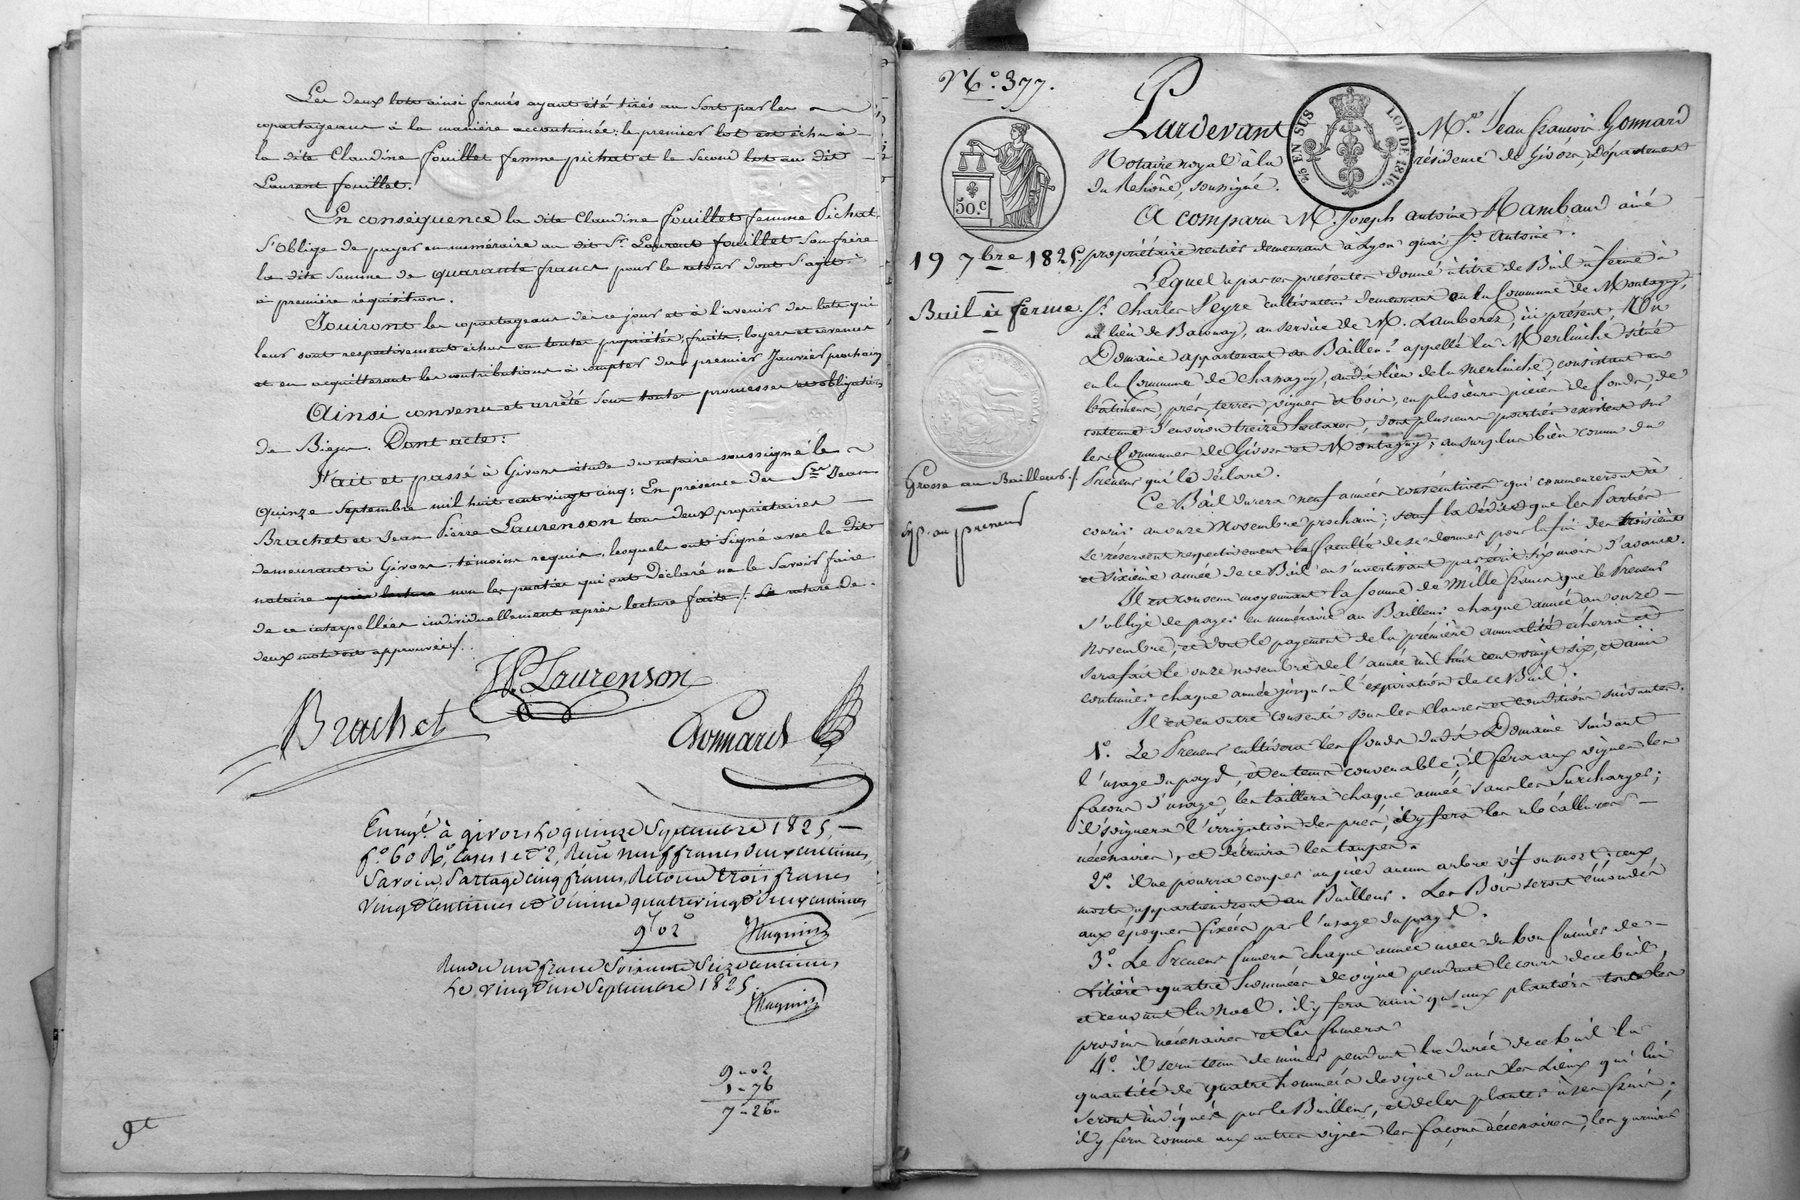 Les deux lots ainsi formés ayant été tirés au sort par les
copartageans à la manière accoutumée, le premier lot est échu à
la dite Claudine fouillet femme pichat et le second lot au dit
Laurent fouillet.
En conséquence la dite Claudine fouillet femme Pichat
s'oblige de payer en numéraire au dit Sr. Laurent fouillet son frère
la dite somme de quarante francs pour le retour dont s'agit
à première réquisition.
Jouiront les copartageans dès ce jour et à l'avenir des lots qui
leur sont respectivement échus en toute propriété, fruits, loyers et revenus
et en acquitteront les contributions à compter du premier Janvier prochain
Ainsi convenu et arrêté sous toutes promesses et obligations
de Biens. Dont acte:
Fait et passé à Givors étude du notaire soussigné le
quinze Septembre mil huit cent vingt cinq; En présence des Srs. Jean
Brachet et Jean Pierre Laurenson tous deux propriétaires
demeurant à Givors, témoins requis, lesquels ont signé avec le dit
notaire après lecture non les parties qui ont déclaré ne le savoir faire
de ce interpellées individuellement après lecture faite /. La rature de
deux mots est approuvée /.
JP. Laurenson
Brachet
Gonnard
Enregé. à givors le quinze Septembre 1825,
fo. 60 Ro. Cases 1 et 2, Reçu neuf francs deux centimes,
Savoir, Partage cinq francs, Retour trois francs
vingt centimes et dixième quatre vingt deux centimes
9f 02
Huguin
Rendu un franc Soixante Seize centimes
Le vingt une Septembre 1825.
Huguin
9-02
1-76
7-26-
No. 377.
50.C
25 EN SUS
LOI DE 1816.
19 7bre 1825.
Bail à ferme
Grosse au Bailleur /.
Exp. au preneur
Pardevant Me. Jean françois Gonnard
Notaire royal à la résidence de Givors Département
du Rhône, soussigné.
A comparu M. Joseph Antoine Rambaud ainé
propriétaire rentier demeurant à Lyon quai St. Antoine.
Lequel a par ces présentes donné à titre de Bail à ferme à
Sr. Charles Peyre cultivateur demeurant en la Commune de Montagny,
au lieu de Baronay, au service de M. Lamberez, ici présent, Un
Domaine appartenant au Bailleur appellé la Merlinche situé
en la Commune de Chassagny, au dit lieu de la Merlinche, consistant en
bâtimens, prés, terres, vignes et bois, en plusieurs pièces de fonds, de
contenue d'environ treize hectares, dont plusieurs parties existent sur
les Communes de Givors et Montagny; au surplus bien connu du
Preneur qui le déclare.
Ce Bail durera neuf années consécutives qui commenceront à
courir au onze Novembre prochain; sauf la dédite que les Parties
se réservent respectivement la faculté de se donner pour la fin des troisième
et sixième année de ce Bail en s'avertissant par écrit six mois d'avance.
Il est consenti moyennant la somme de Mille francs que le Preneur
s'oblige de payer en numéraire au Bailleur chaque année au onze
Novembre, et dont le payement de la première annualité écherra et
sera fait le onze novembre de l'année mil huit cent vingt six, et ainsi
continuer chaque année jusqu'à l'expiration de ce Bail.
Il est en outre consenti sous les clauses et conditions suivantes.
1o. Le Preneur cultivera les fonds dudit Domaine suivant
l'usage du pays, et en tems convenable; il fera aux vignes les
façons d'usage, les taillera chaque année sans les surcharger;
il soignera l'irrigation des prés, il y fera les récallures
nécessaires, et détruira les taupes.
2o. il ne pourra couper au pied aucun arbre vif ou mort: ceux
morts appartiendront au Bailleur. Les Bois seront émondés
aux époques fixées par l'usage du pays.
3o. Le Preneur fumera chaque année avec du bon fumier de
Litière quatre hommées de vigne pendant le cours de ce bail,
et ce avant la noel. il y fera ainsi qu'aux plantiers toutes les
provins nécessaires et les fumera
4o. il sera tenu de miner pendant la durée de ce bail la
quantité de quatre hommées de vigne dans les Lieux qui lui
seront indiqués par le Bailleur, et de les planter à ses frais;
il y fera comme aux autres vignes les façons nécessaires, les garnira